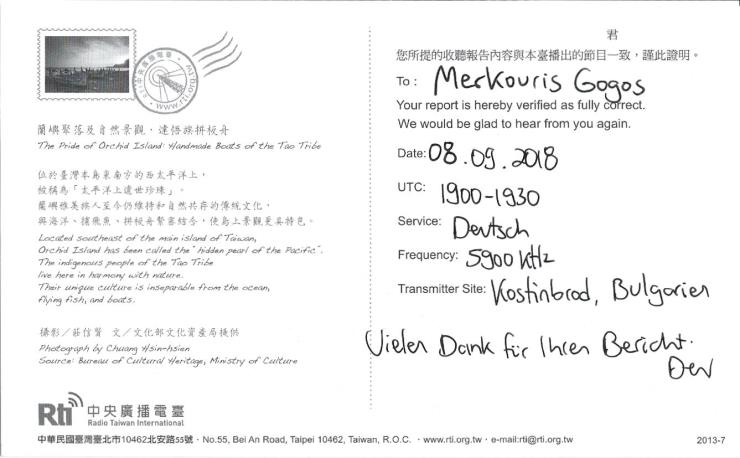 中央廣播電臺
www.rti.org.tw
蘭嶼聚落及自然景觀．達悟族拼板舟
The Pride of Orchid Island: Handmade Boats of the Tao Tribe
位於臺灣本島東南方的西太平洋上，
被稱為「太平洋上遺世珍珠」。
蘭嶼雅美族人至今仍維持和自然共存的傳統文化，
與海洋、捕飛魚、拼板舟緊密結合，使島上景觀更具特色。
Located southeast of the main island of Taiwan,
Orchid Island has been called the "hidden pearl of the Pacific".
The indigenous people of the Tao Tribe
live here in harmony with nature.
Their unique culture is inseparable from the ocean,
flying fish, and boats.
攝影／莊信賢 文／文化部文化資產局提供
Photograph by Chuang Hsin-hsien
Source: Bureau of Cultural Heritage, Ministry of Culture
Rti 中央廣播電臺
Radio Taiwan International
中華民國臺灣臺北市10462北安路55號．No.55, Bei An Road, Taipei 10462, Taiwan, R.O.C.．www.rti.org.tw．e-mail:rti@rti.org.tw
君
您所提的收聽報告內容與本臺播出的節目一致，謹此證明。
To : Merkouris Gogos
Your report is hereby verified as fully correct.
We would be glad to hear from you again.
Date: 08.09.2018
UTC: 1900-1930
Service: Deutsch
Frequency: 5900 kHz
Transmitter Site: Kostinbrod, Bulgarien
Vielen Dank für Ihren Bericht.
2013-7